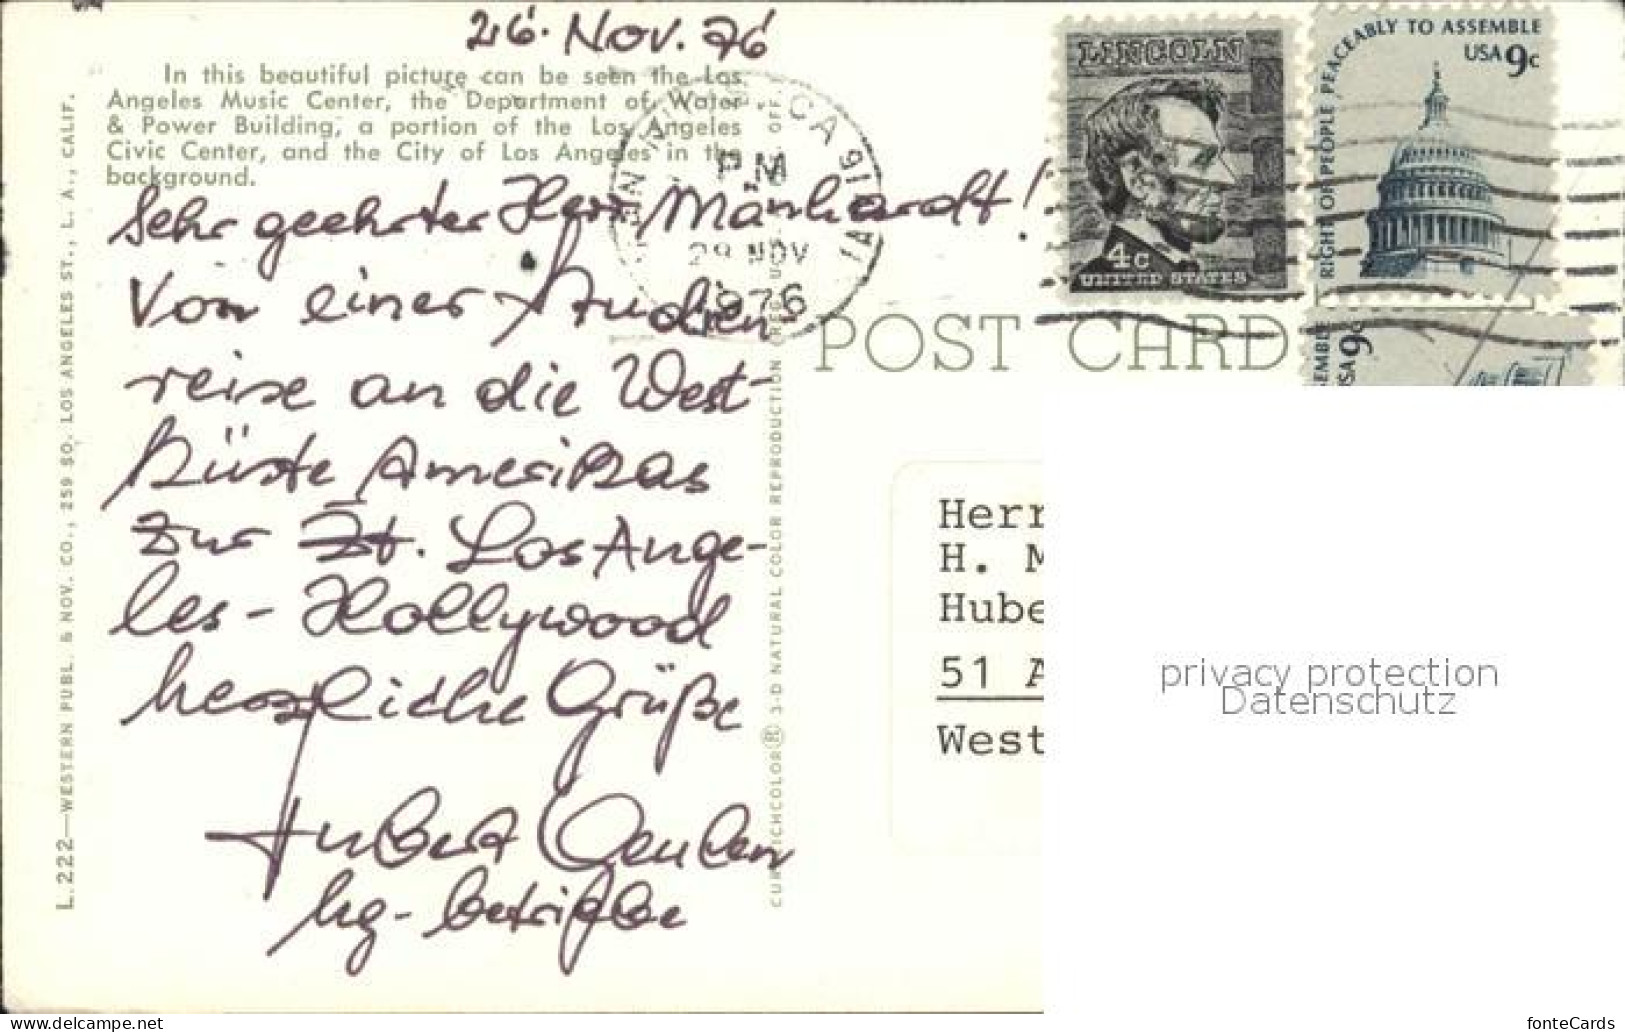 26. Nov. 76
In this beautiful picture can be seen the Los
Angeles Music Center, the Department of Water
& Power Building, a portion of the Los Angeles
Civic Center, and the City of Los Angeles in the
background.
Sehr geehrter Herr Mänhardt!
Von einer Studien
reise an die West-
küste Amerikas
zur Zt. Los Ange-
les - Hollywood
herzliche Grüße
Hubert
hg-betriebe
L.222—WESTERN PUBL. & NOV. CO., 259 SO. LOS ANGELES ST., L. A., CALIF.
CURTEICHCOLOR® 3-D NATURAL COLOR REPRODUCTION (REG. U.S. PAT. OFF.
CA
PM
29 NOV
1976
LINCOLN
4c
UNITED STATES
RIGHT OF PEOPLE PEACEABLY TO ASSEMBLE
USA 9c
SEMBLE
USA 9c
POST CARD
Herr
H. M
Hube
51 A
West
privacy protection
Datenschutz
https://www.delcampe.net/store/bartko-reher
fonteCards